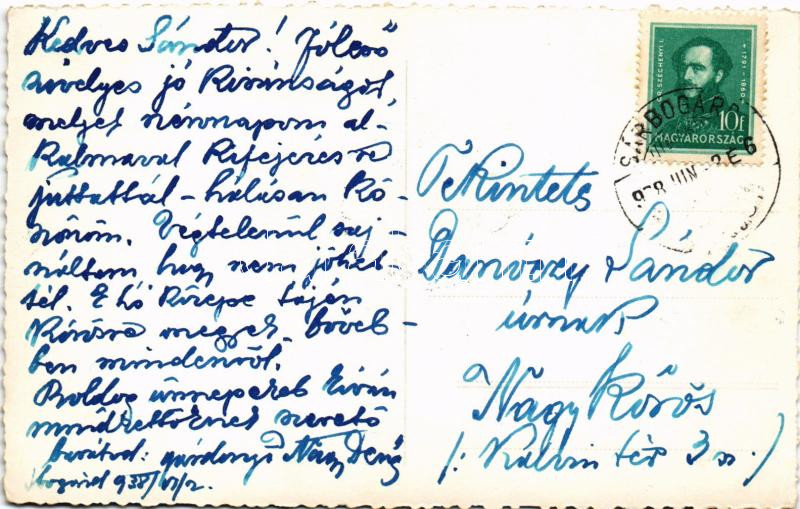 Kedves Sándor! Jóleső
szívélyes jó kívánságot,
melyet névnapom al-
kalmával kifejezésre
juttattál - hálásan kö-
szönöm. Végtelenül saj-
náltam hogy nem jöhet-
tél. E hó közepe táján
Kőrösre megyek. bőveb-
ben mindenről.
Boldog ünnepeket kíván
mindkettőtöknek szerető
barátod: gárdonyi Nagy Dénes
938/VI/2.
SZÉCHENYI I.
1791-1860
10f
MAGYARORSZÁG
SÁRBOGÁRD
938 JUN -2 E 6
Tekintetes
Danóczy Sándor
úrnak
Nagy Kőrös
/: Kálvin tér 3 sz. /